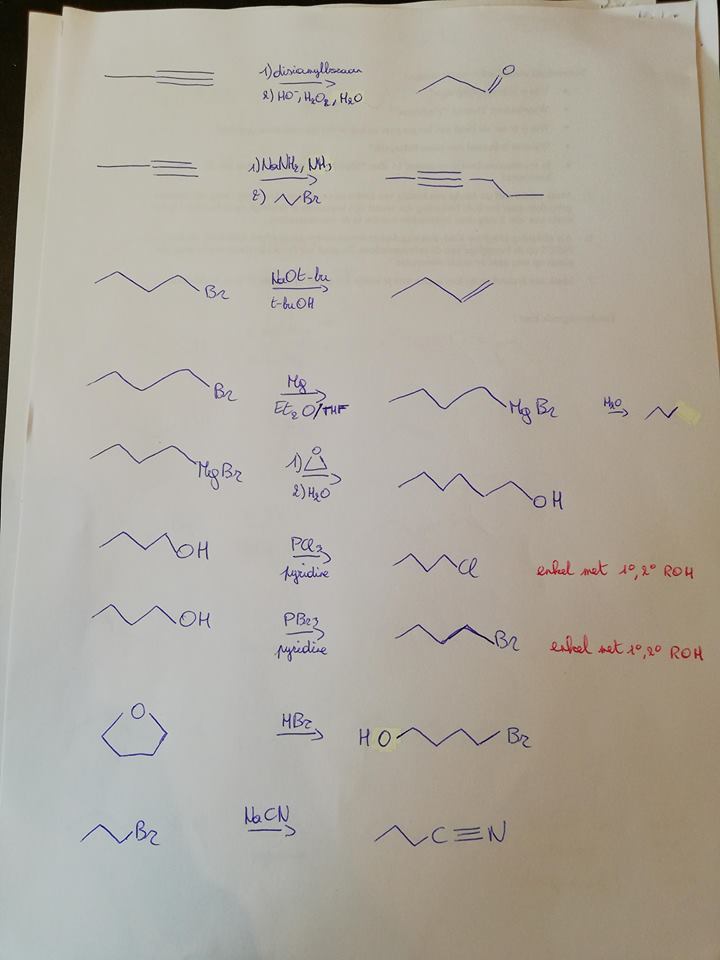 1) disiamylboraan
O
2) HO⁻, H₂O₂, H₂O
1) NaNH₂, NH₃
2) Br
NaOt-bu
Br
t-buOH
Mg
Br
Et₂O/THF
MgBr
H₂O
MgBr
1) O
2) H₂O
OH
OH
PCl₃
pyridine
Cl
enkel met 1°, 2° ROH
OH
PBr₃
pyridine
Br
enkel met 1°, 2° ROH
O
HBr
HO Br
Br
NaCN
C≡N